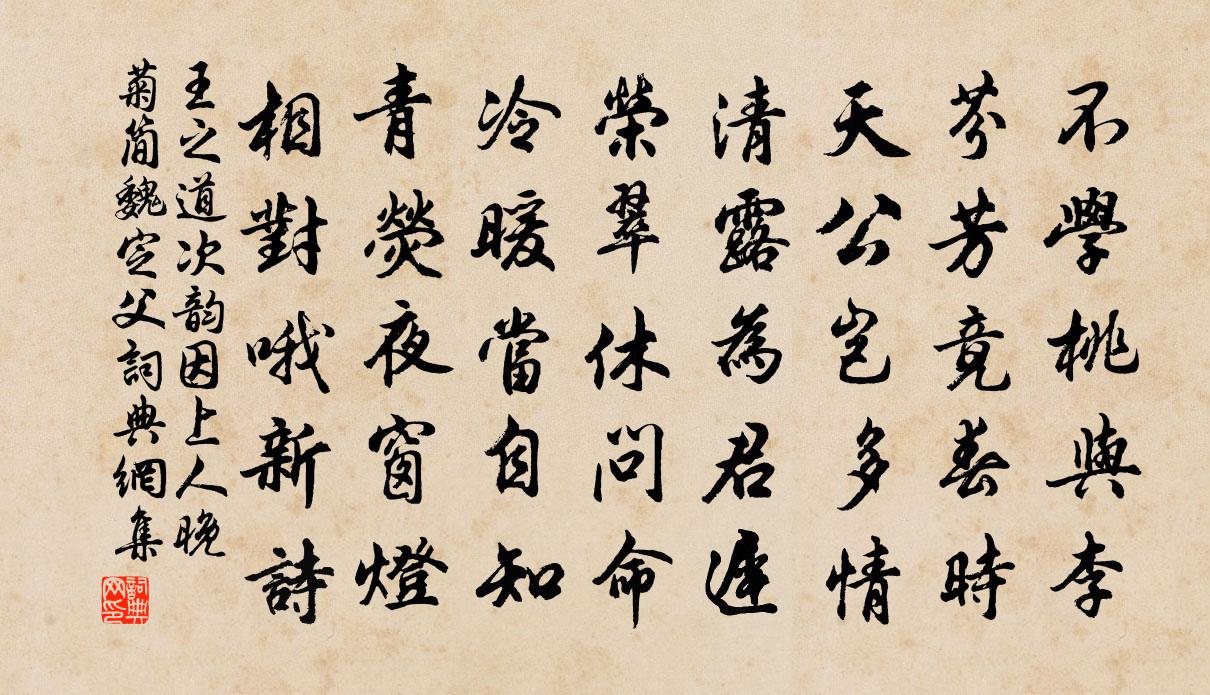 不學桃與李
芬芳竟春時
天公豈多情
清露為君遲
榮翠休問命
冷暖當自知
青熒夜窗燈
相對哦新詩
王之道次韵因上人晚
菊簡魏定父詞典網集
詞典
网印